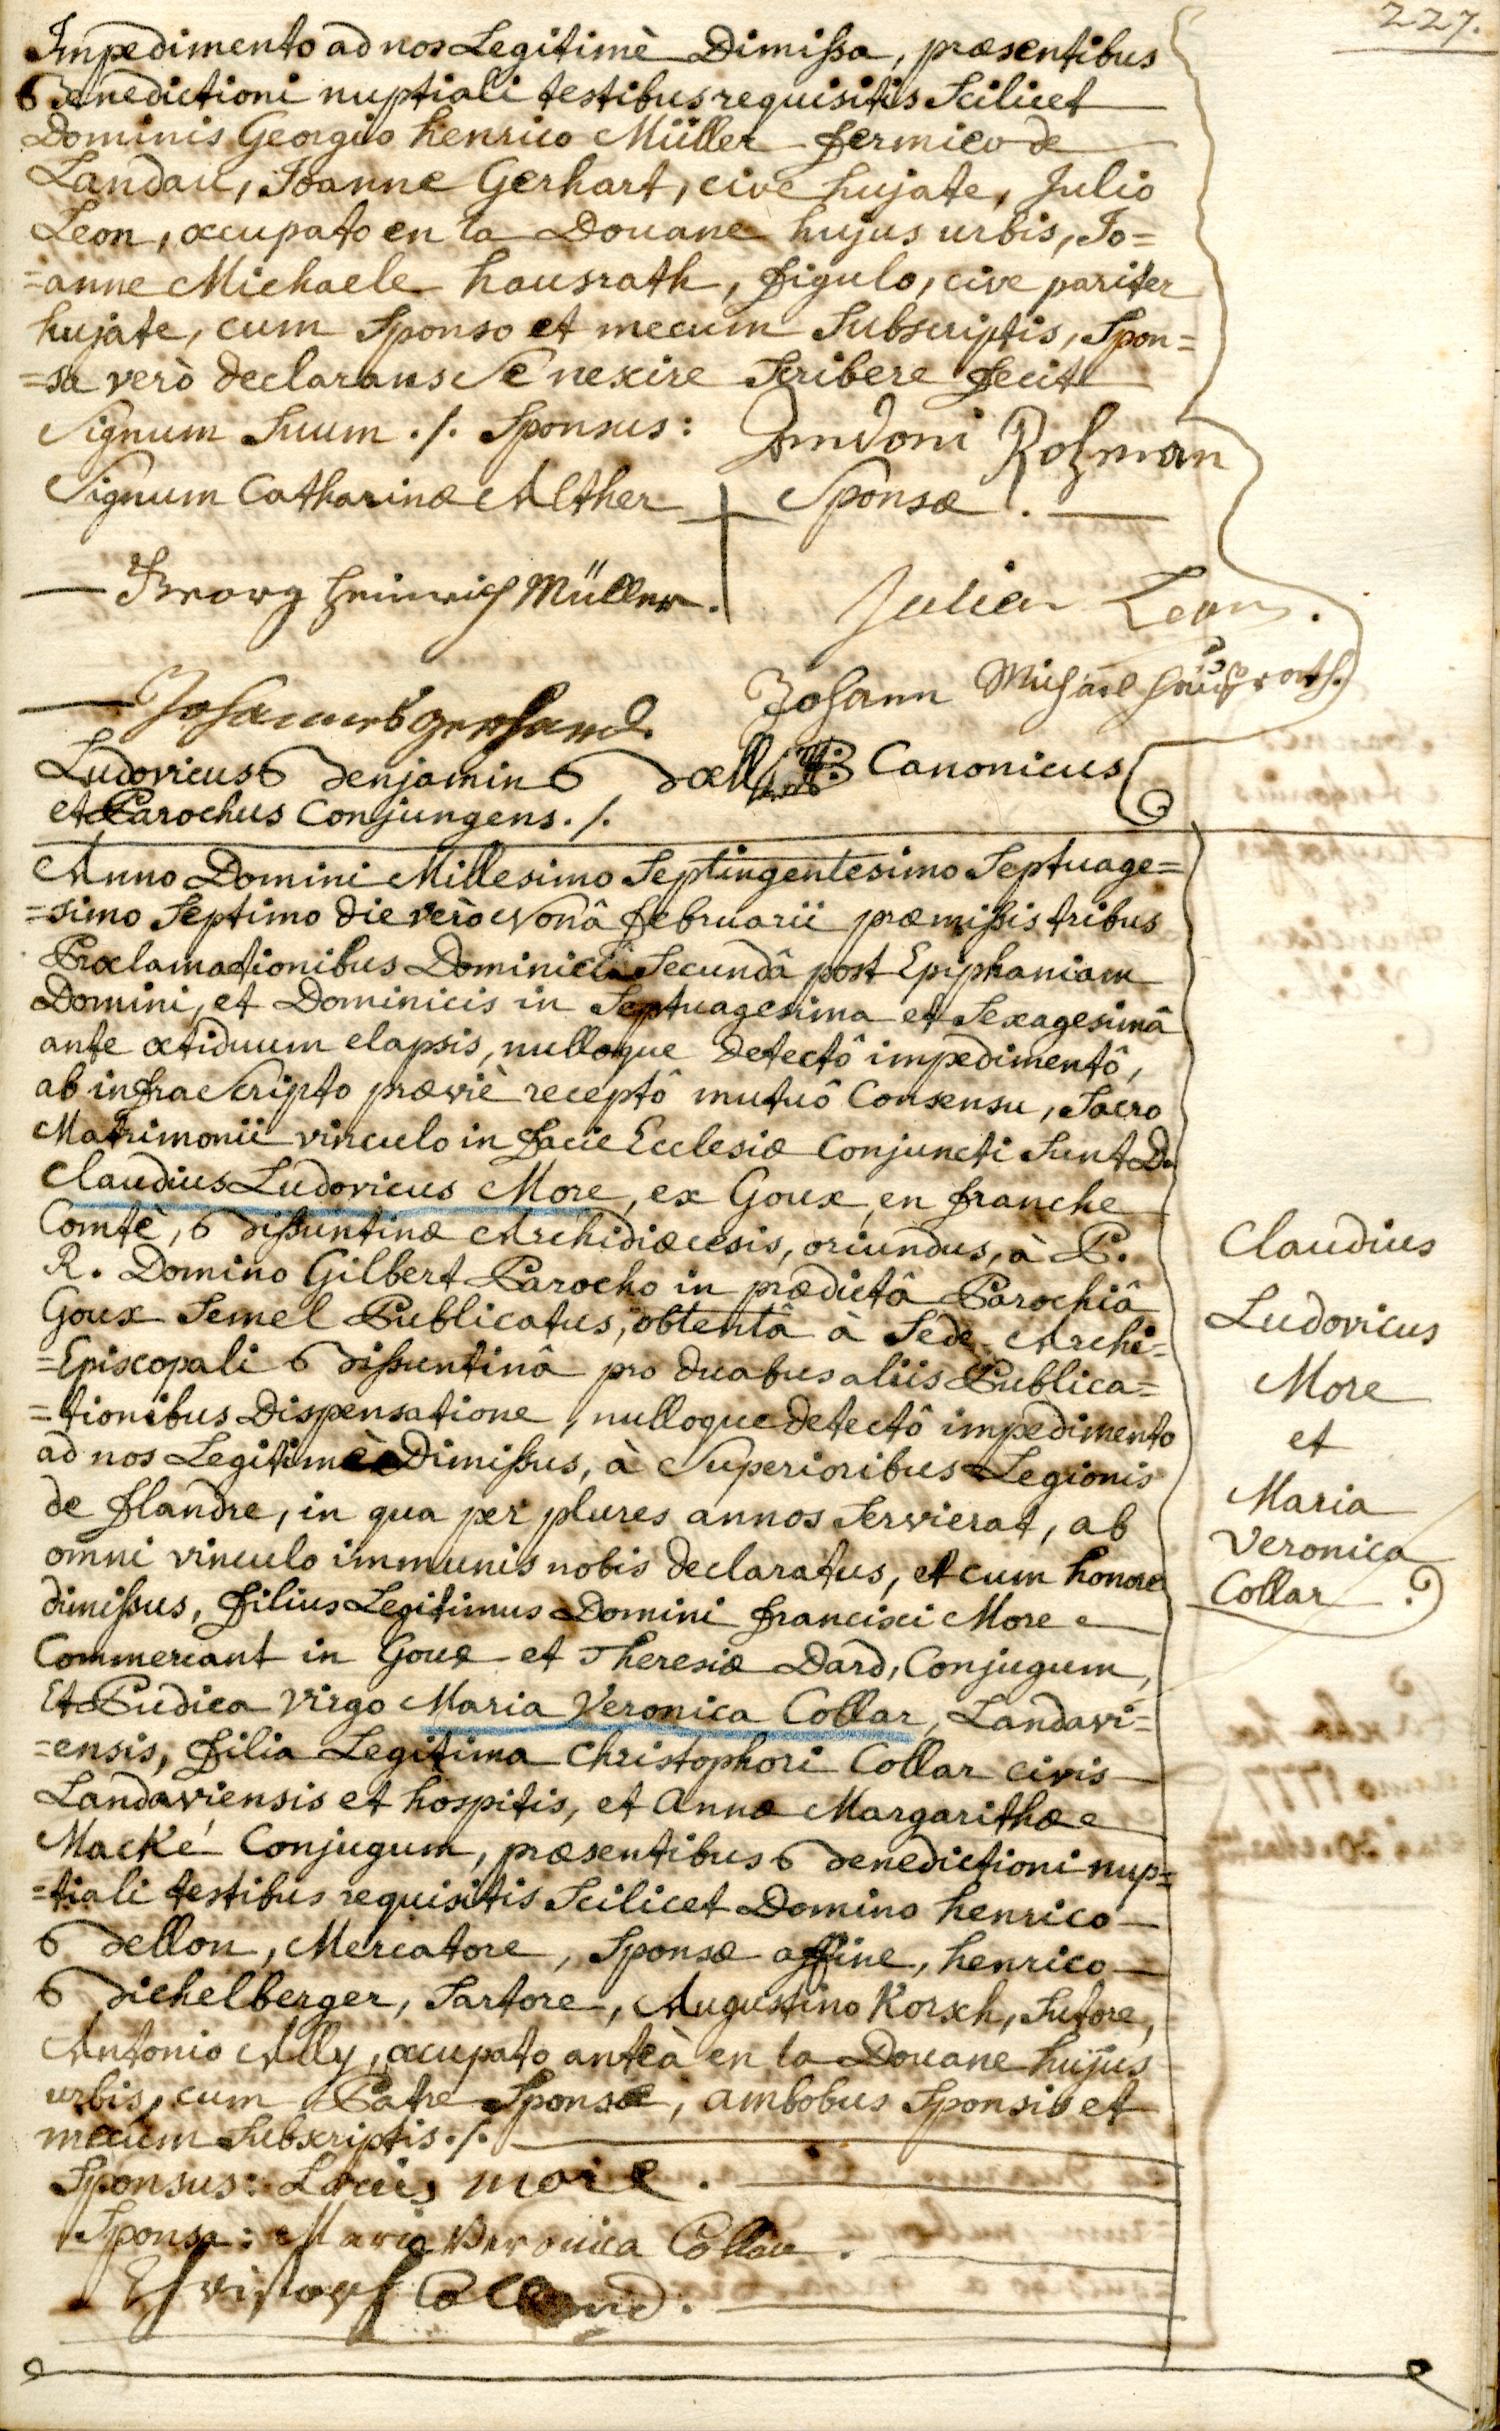 227.
Impedimento ad nos Legitimè Dimissa, præsentibus
Benedictioni nuptiali testibus requisitis Scilicet
Dominis Georgio henrico Müller fermico de
Landau, Joanne Gerhart, cive hujate, Julio
Leon, occupato en la Douane hujus urbis, Jo=
=anne Michaele hausrath, figulo, cive pariter
hujate, cum Sponso et mecum Subscriptis, Spon=
=sa verò declarans Se nescire Scribere fecit
Signum Suum ./. Sponsus: Andoni Rosman
Signum Catharinæ Alther + Sponsæ.
Georg Heinrich Müller. Julien Leon.
Johannes gerhard. Johann Michael Haußrath.
Ludovicus Benjamin Canonicus
et Parochus Conjungens ./.
Anno Domini Millesimo Septingentesimo Septuage=
=simo Septimo die verò Nonâ februarii præmissis tribus
Proclamationibus Dominicâ Secundâ post Epiphaniam
Domini, et Dominicis in Septuagesima et Sexagesimâ
ante octiduum elapsis, nulloque detectô impedimentô,
ab infra Scripto præviè receptô mutuô Consensu, Sacro
Matrimonii vinculo in facie Ecclesiæ Conjuncti Sunt D.
Claudius Ludovicus More, ex Goux, en franche
Comté, Bissuntinæ Archidiæcesis, oriundus, à P.
R. Domino Gilbert Parocho in prædictâ Parochiâ
Goux Semel Publicatus, obtentâ à Sede Archi=
=Episcopali Bissuntinâ pro duabus aliis Publica=
=tionibus Dispensatione, nulloque detectô impedimento
ad nos Legitimè Dimissus, à Superioribus Legionis
de flandre, in qua per plures annos Servierat, ab
omni vinculo immunis nobis declaratus, et cum honore
dimissus, filius Legitimus Domini francisci More
Commercant in Goux et Theresiæ Dard, Conjugum,
Et Pudica Virgo Maria Veronica Collar, Landavi=
=ensis, filia Legitima Christophori Collar civis
Landaviensis et hospitis, et Annæ Margarithæ
Macké Conjugum, præsentibus Benedictioni nup=
=tiali testibus requisitis Scilicet Domino henrico
Bellon, Mercatore, Sponsæ affine, henrico
Bichelberger, Sartore, Augustino Korsch, Sutore,
Antonio Ally, occupato anteà en la Douane hujus
urbis, cum Patre Sponsæ, ambobus Sponsis et
mecum Subscriptis ./.
Sponsus: Louis more.
Sponsa: Maria Veronica Collar.
Claudius
Ludovicus
More
et
Maria
Veronica
Collar.